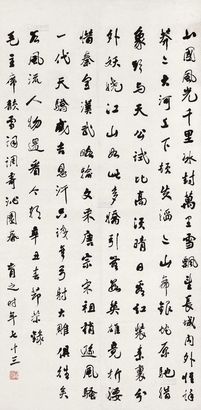 北國風光千里冰封萬里雪飄望長城内外惟餘
莽〻大河上下頓失滔〻山舞銀蛇原馳蠟
象欲与天公試比高須晴日看紅裝素裹分
外妖嬈江山如此多嬌引無數英雄竞折腰
惜秦皇漢武略輸文采唐宗宋祖稍遜風騷
一代天驕成吉思汗只識彎弓射大雕俱往矣
數風流人物還看今朝 辛丑春節恭錄
毛主席詠雪詞調寄沁園春 肖之时年七十三